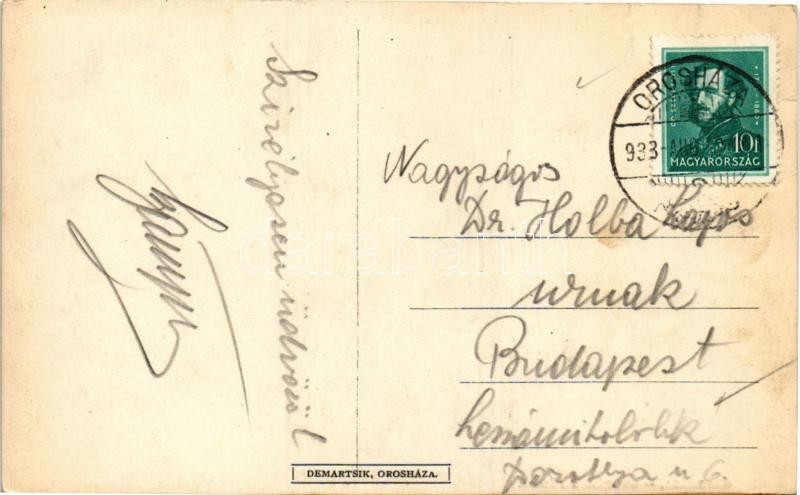 Szivélyesen üdvözöl
OROSHÁZA
933
10f
MAGYARORSZÁG
Nagyságos
Dr. Holba Lajos
urnak
Budapest
u 6.
DEMARTSIK, OROSHÁZA.
darabanth